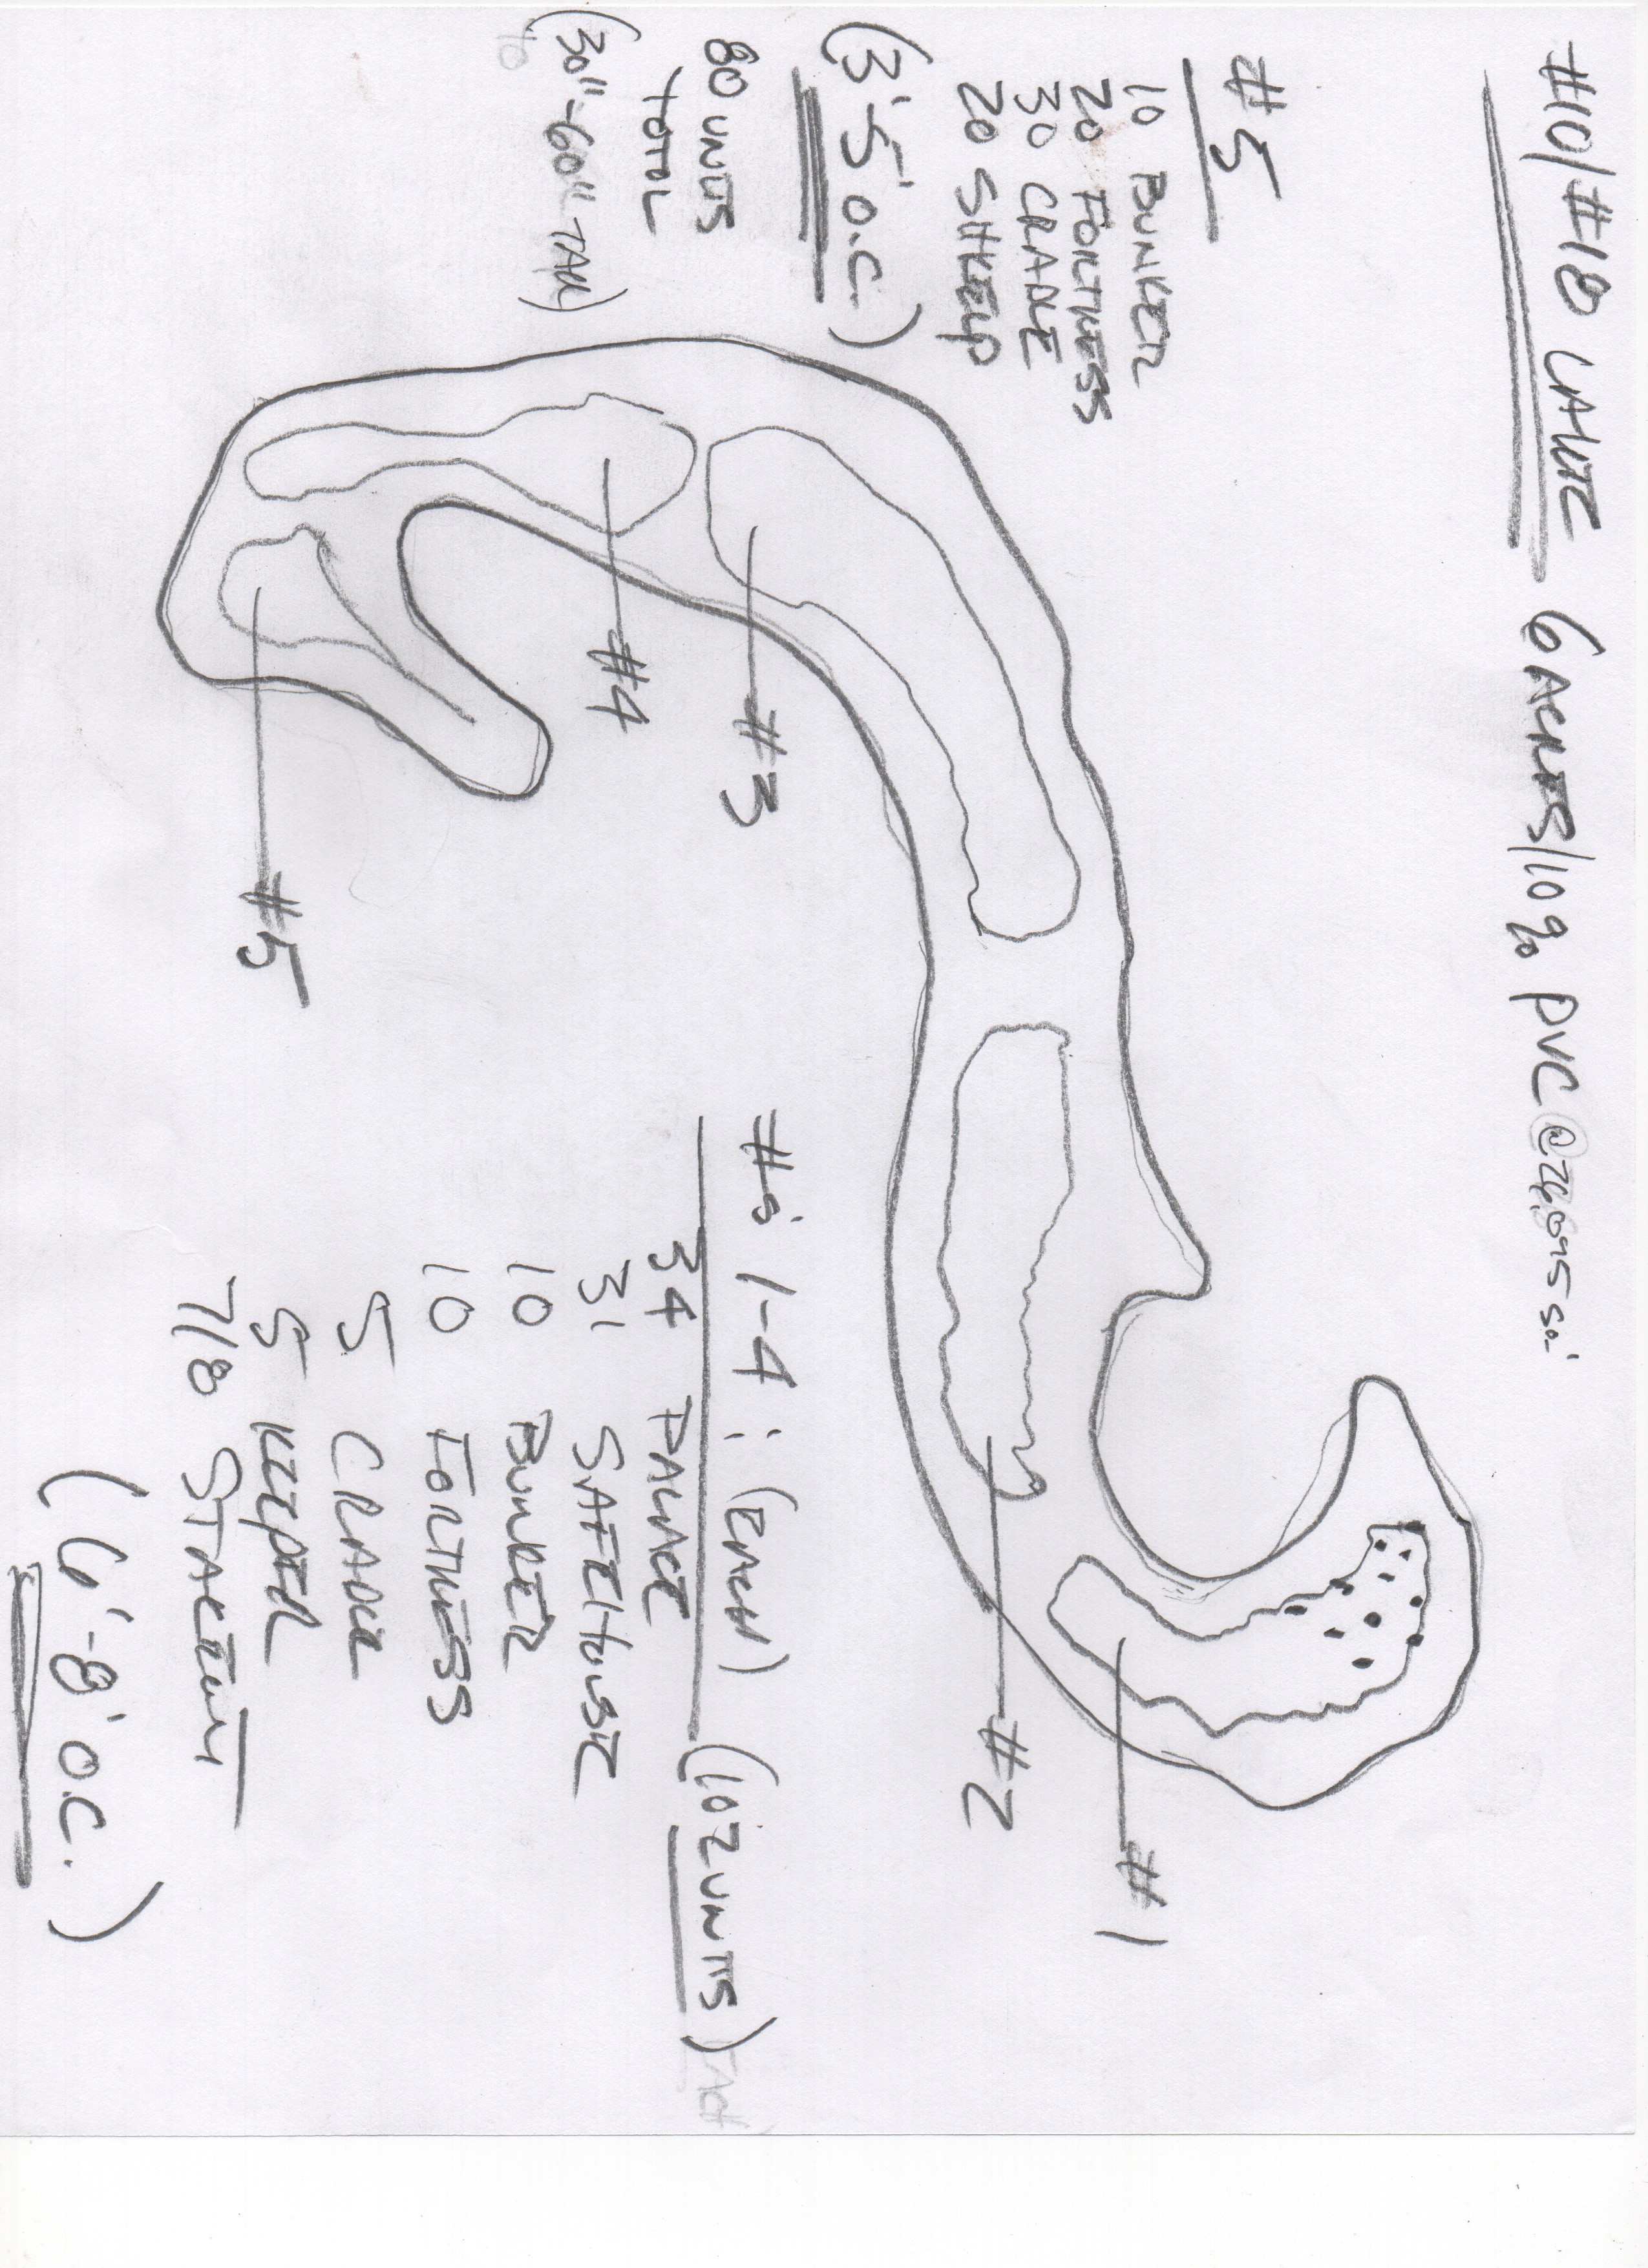 #10/#18 LAKE 6 ACRES/10% PVC @ 26,095 SQ.'
#5
10 BUNKER
20 FORTRESS
30 CRADLE
20 SHKELP
(3'-5' O.C.)
80 UNITS
TOTAL
(30"-60" TALL)
#1
#2
#3
#4
#5
#s 1-4: (EACH) (102 UNITS)
34 PALACE
31 SAFEHOUSE
10 BUNKER
10 FORTRESS
5 CRADLE
5 KEEPER
7/8 STAKEOUT
(6'-8' O.C.)